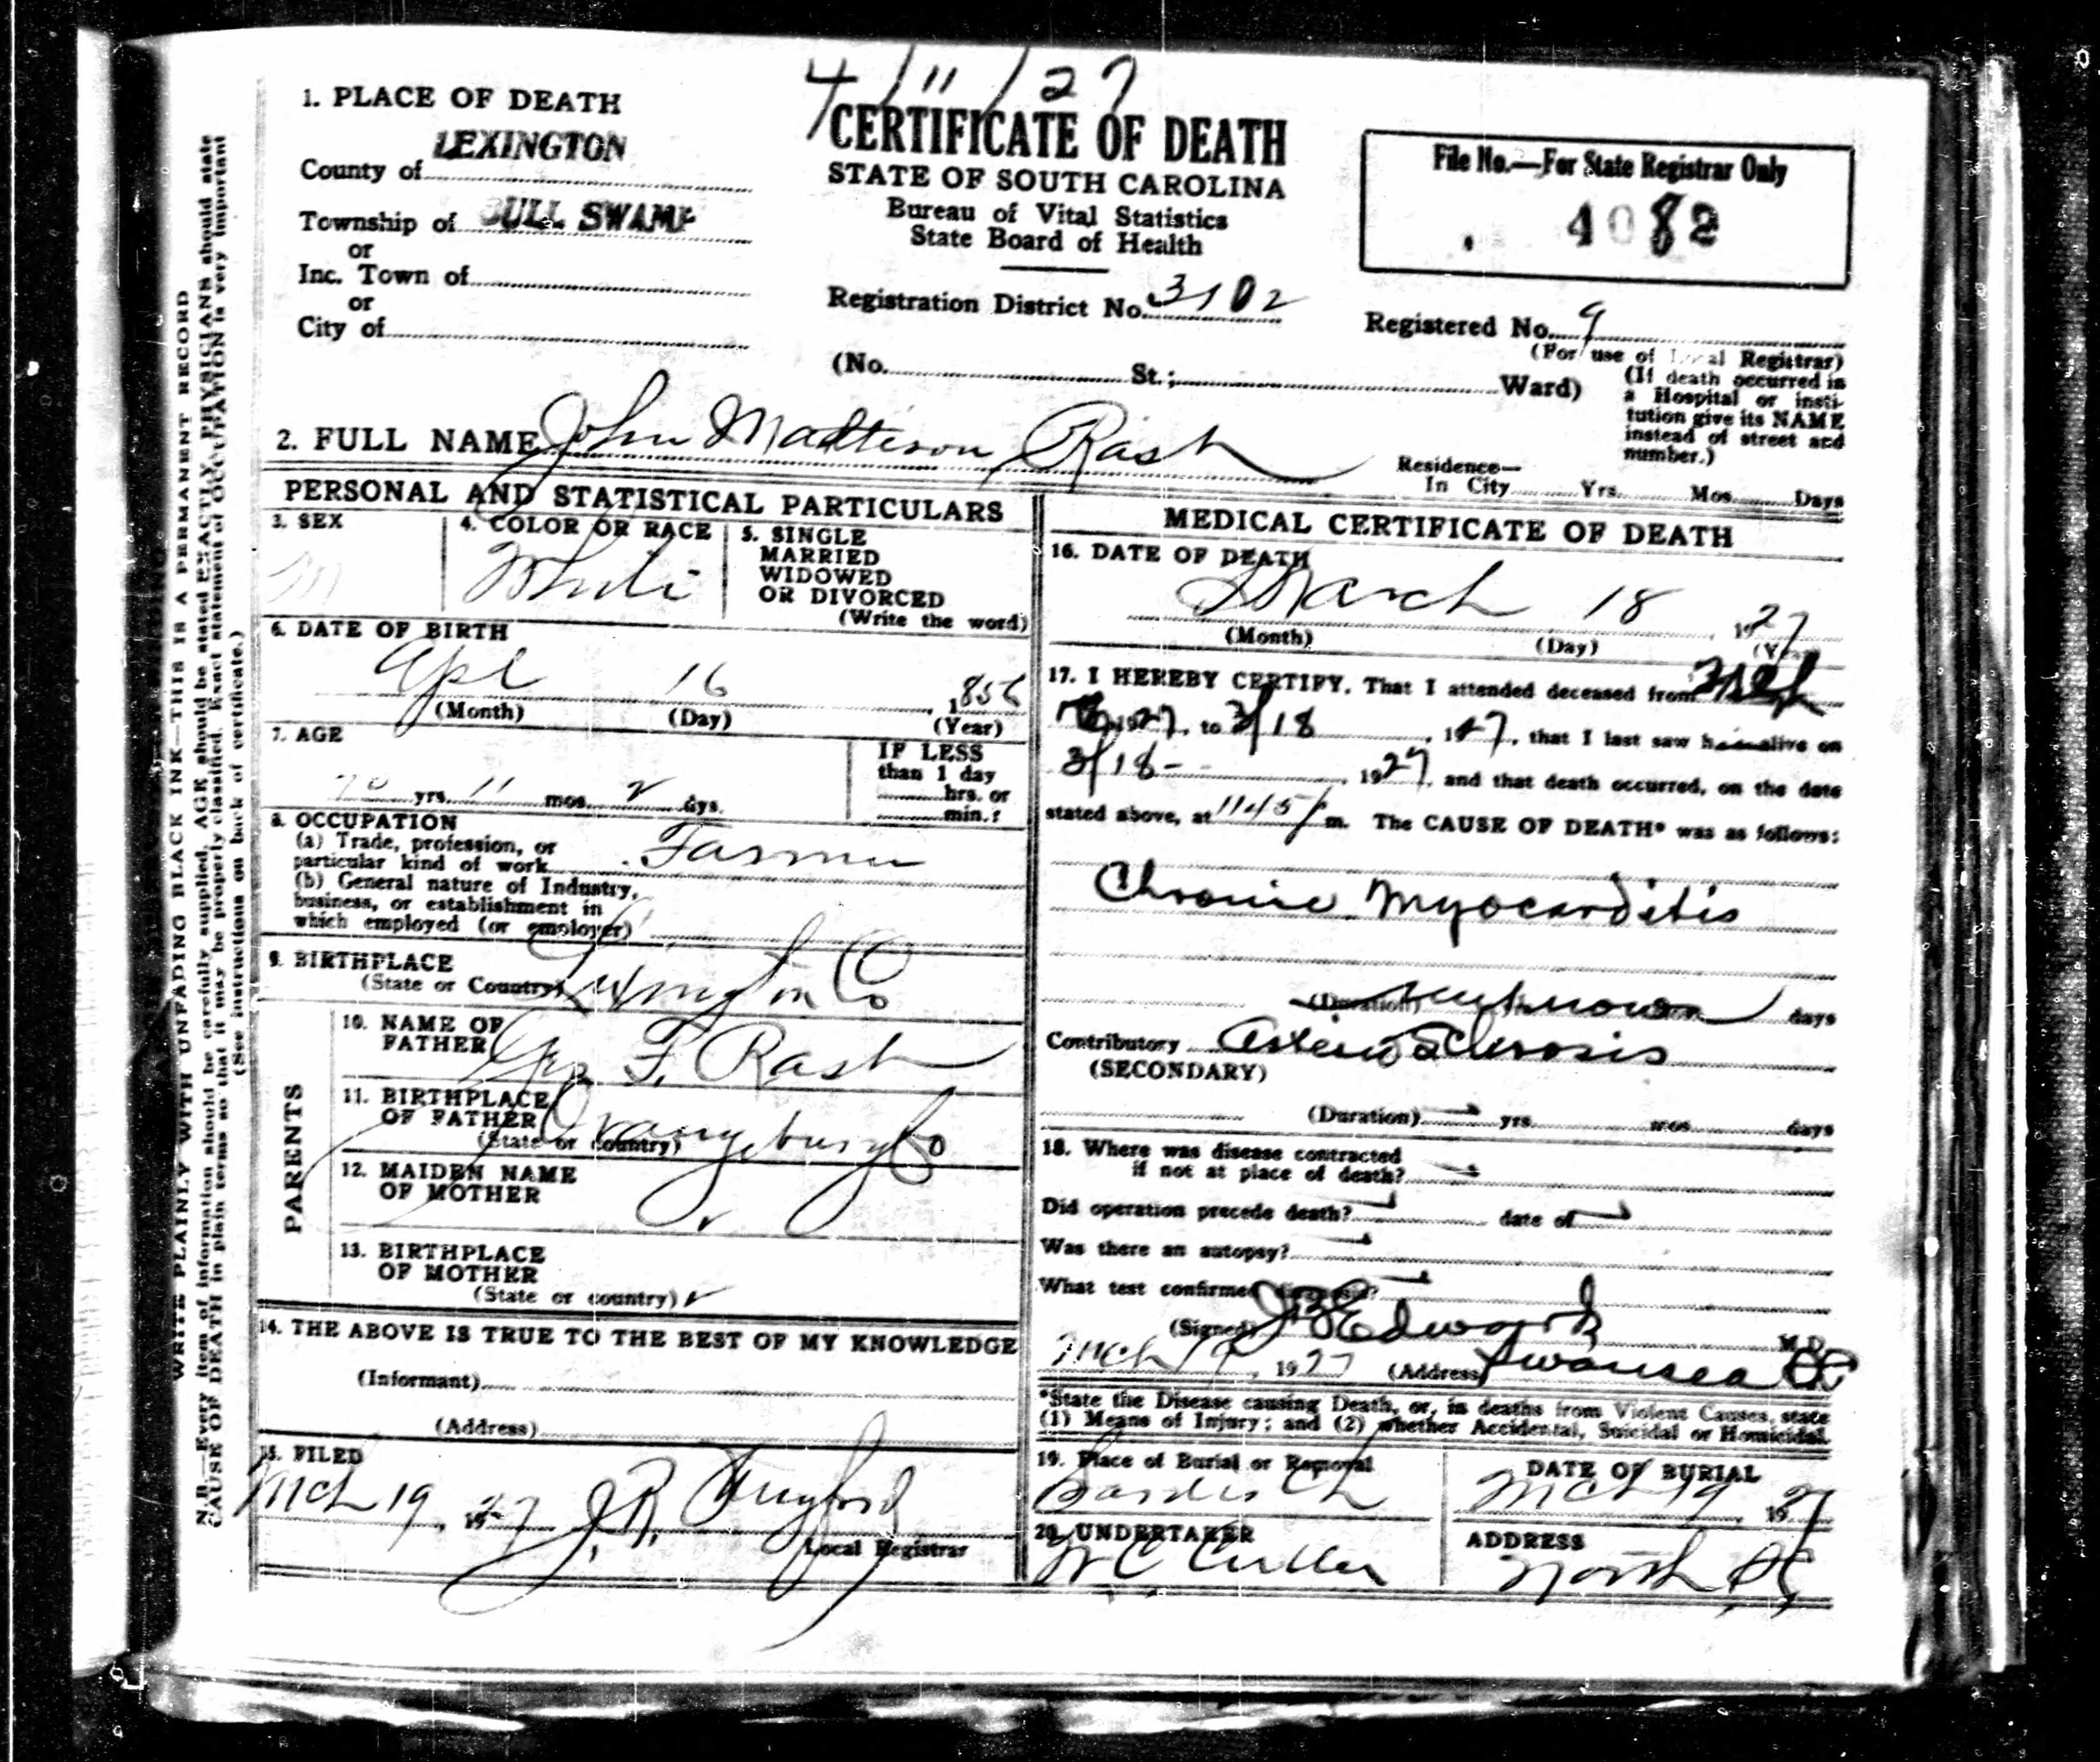 4/11/27
1. PLACE OF DEATH
County of LEXINGTON
Township of BULL SWAMP
or
Inc. Town of
or
City of
CERTIFICATE OF DEATH
STATE OF SOUTH CAROLINA
Bureau of Vital Statistics
State Board of Health
Registration District No. 3102
(No. St.; Ward)
File No.—For State Registrar Only
4082
Registered No. 9
(For use of Local Registrar)
(If death occurred in
a Hospital or insti-
tution give its NAME
instead of street and
number.)
2. FULL NAME John Mattison Rast
Residence—
In City Yrs. Mos. Days
PERSONAL AND STATISTICAL PARTICULARS
3. SEX
M
4. COLOR OR RACE
White
5. SINGLE
MARRIED
WIDOWED
OR DIVORCED
(Write the word)
6. DATE OF BIRTH
Apl 16, 1856
(Month) (Day) (Year)
7. AGE
70 yrs. 11 mos. 2 dys.
IF LESS
than 1 day
hrs. or
min.?
8. OCCUPATION
(a) Trade, profession, or
particular kind of work Farmer
(b) General nature of Industry,
business, or establishment in
which employed (or employer)
9. BIRTHPLACE
(State or Country) Lexington Co
PARENTS
10. NAME OF
FATHER Geo F. Rast
11. BIRTHPLACE
OF FATHER
(State or country) Orangeburg Co
12. MAIDEN NAME
OF MOTHER
13. BIRTHPLACE
OF MOTHER
(State or country)
14. THE ABOVE IS TRUE TO THE BEST OF MY KNOWLEDGE
(Informant)
(Address)
15. FILED
Mch 19, 1927 J. R.
Local Registrar
MEDICAL CERTIFICATE OF DEATH
16. DATE OF DEATH
March 18, 1927
(Month) (Day)
17. I HEREBY CERTIFY, That I attended deceased from
1927, to 3/18, 1927, that I last saw him alive on
3/18-, 1927, and that death occurred, on the date
stated above, at 11:45 P m. The CAUSE OF DEATH* was as follows:
Chronic Myocarditis
(Duration) unknown days
Contributory Arterio Sclerosis
(SECONDARY)
(Duration) yrs. mos. days
18. Where was disease contracted
if not at place of death?
Did operation precede death? date of
Was there an autopsy?
What test confirmed diagnosis?
(Signed) Edwards M. D.
Mch 19, 1927 (Address) Swansea SC
*State the Disease causing Death, or, in deaths from Violent Causes, state
(1) Means of Injury; and (2) whether Accidental, Suicidal or Homicidal.
19. Place of Burial or Removal
Sardis Ch
DATE OF BURIAL
Mch 19 1927
20. UNDERTAKER
W C Culler
ADDRESS
North SC
WRITE PLAINLY WITH UNFADING BLACK INK—THIS IS A PERMANENT RECORD
N. B.—Every item of information should be carefully supplied. AGE should be stated EXACTLY. PHYSICIANS should state
CAUSE OF DEATH in plain terms so that it may be properly classified. Exact statement of OCCUPATION is very important
(See instructions on back of certificate.)